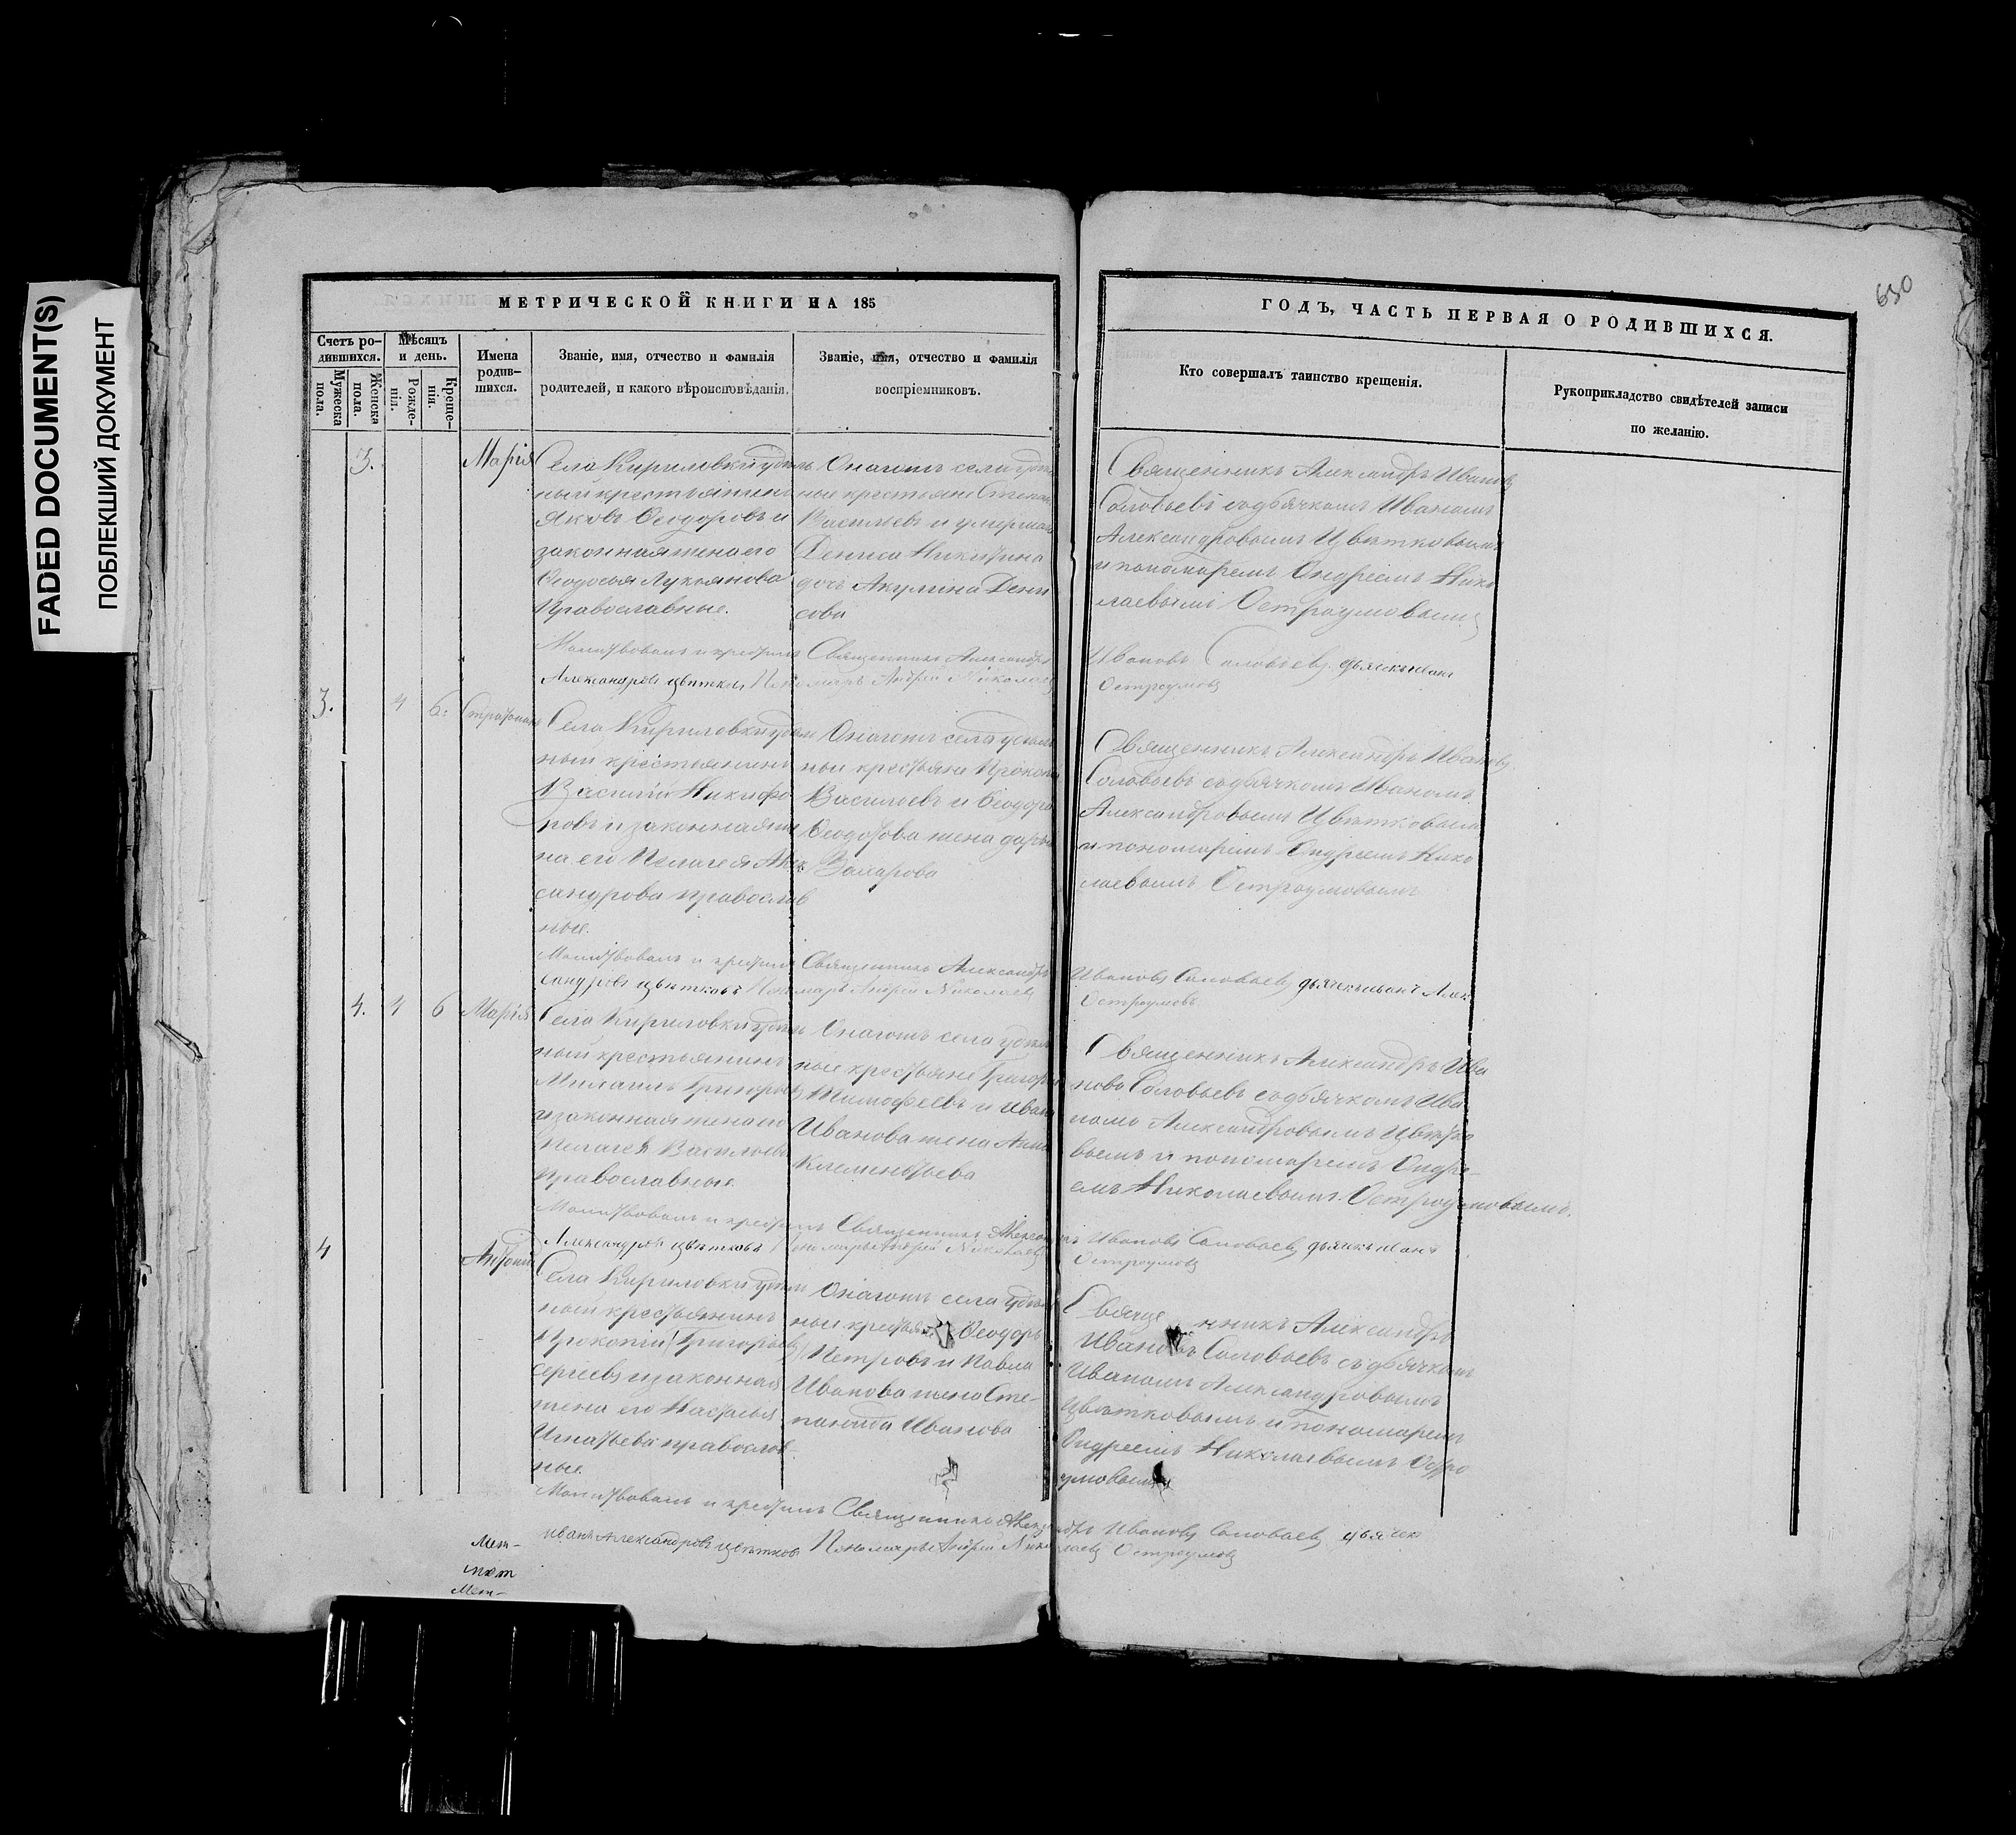 FADED DOCUMENT(S)
ПОБЛЕКШИЙ ДОКУМЕНТ
630
МЕТРИЧЕСКОЙ КНИГИ НА 185
Счетъ ро-
дившихся.
Мужеска
пола.
Женска
пола.
Мѣсяцъ
и день.
Рожде-
нія.
Креще-
нія.
Имена
родив-
шихся.
Званіе, имя, отчество и фамилія
родителей, и какого вѣроисповѣданія.
Званіе, имя, отчество и фамилія
воспріемниковъ.
ГОДЪ, ЧАСТЬ ПЕРВАЯ О РОДИВШИХСЯ.
Кто совершалъ таинство крещенія.
Рукоприкладство свидѣтелей записи
по желанію.
3.
Марія
Села Кириловки удѣль
ный крестьянинъ
Яковъ Ѳеодоровъ и
законная жена его
Ѳеодосья Лукьянова
Православные.
Онагожъ села
ные крестьяне Степанъ
Васильевъ и умершаго
Дениса Никитина
дочь Акулина Дени
сова
Священникъ Александръ Ивановъ
Соловьевъ съ дьячкомъ Иваномъ
Александровымъ Цвѣтковымъ
и пономаремъ Ондреемъ Нико
лаевымъ Остроумовымъ
Молитвовалъ и крестилъ Священникъ Александръ Ивановъ Соловьевъ дьячекъ Иванъ
Александровъ Цвѣтковъ Пономарь Андрей Николаевъ Остроумовъ
3.
4
6.
Села Кириловки
ный крестьянинъ
Василій Никифо
ровъ и законная же
на его Пелагея Алек
сандрова православ
ные.
Онагожъ села
ные крестьяне Прокопій
Васильевъ и Ѳеодора
Ѳеодотова жена Дарья
Захарова
Священникъ Александръ Ивановъ
Соловьевъ съ дьячкомъ Иваномъ
Александровымъ Цвѣтковымъ
и пономаремъ Ондреемъ Нико
лаевымъ Остроумовымъ
Молитвовалъ и крестилъ Священникъ Александръ Ивановъ Соловьевъ дьячекъ Иванъ Алек
сандровъ Цвѣтковъ Пономарь Андрей Николаевъ Остроумовъ
4.
4
6
Марія
Села Кириловки
ный крестьянинъ
Михаилъ Григорьевъ
и законная жена его
Пелагея Васильева
Православные.
Онагожъ села
ные крестьяне Григорій
Тимофеевъ и Ивана
Иванова жена Анна
Клементьева
Священникъ Александръ Ива
новъ Соловьевъ съ дьячкомъ Ива
номъ Александровымъ Цвѣтко
вымъ и пономаремъ Ондре-
емъ Николаевымъ Остроумовымъ.
Молитвовалъ и крестилъ Священникъ Александръ Ивановъ Соловьевъ дьячекъ Иванъ
Александровъ Цвѣтковъ Пономарь Андрей Николаевъ Остроумовъ
4
Села Кириловки
ный крестьянинъ
Прокопій Григорьевъ
Сергеевъ и законная
жена его Настасья
Игнатьева православ
ные.
Онагожъ села
ные крестьяне Ѳеодоръ
Петровъ и Павла
Иванова жена Сте-
панида Иванова
Священникъ Александръ
Ивановъ Соловьевъ съ дьячкомъ
Иваномъ Александровымъ
Цвѣтковымъ и пономаремъ
Ондреемъ Николаевымъ Остро
умовымъ
Молитвовалъ и крестилъ Священникъ Александръ Ивановъ Соловьевъ дьячекъ
Иванъ Александровъ Цвѣтковъ Пономарь Андрей Николаевъ Остроумовъ